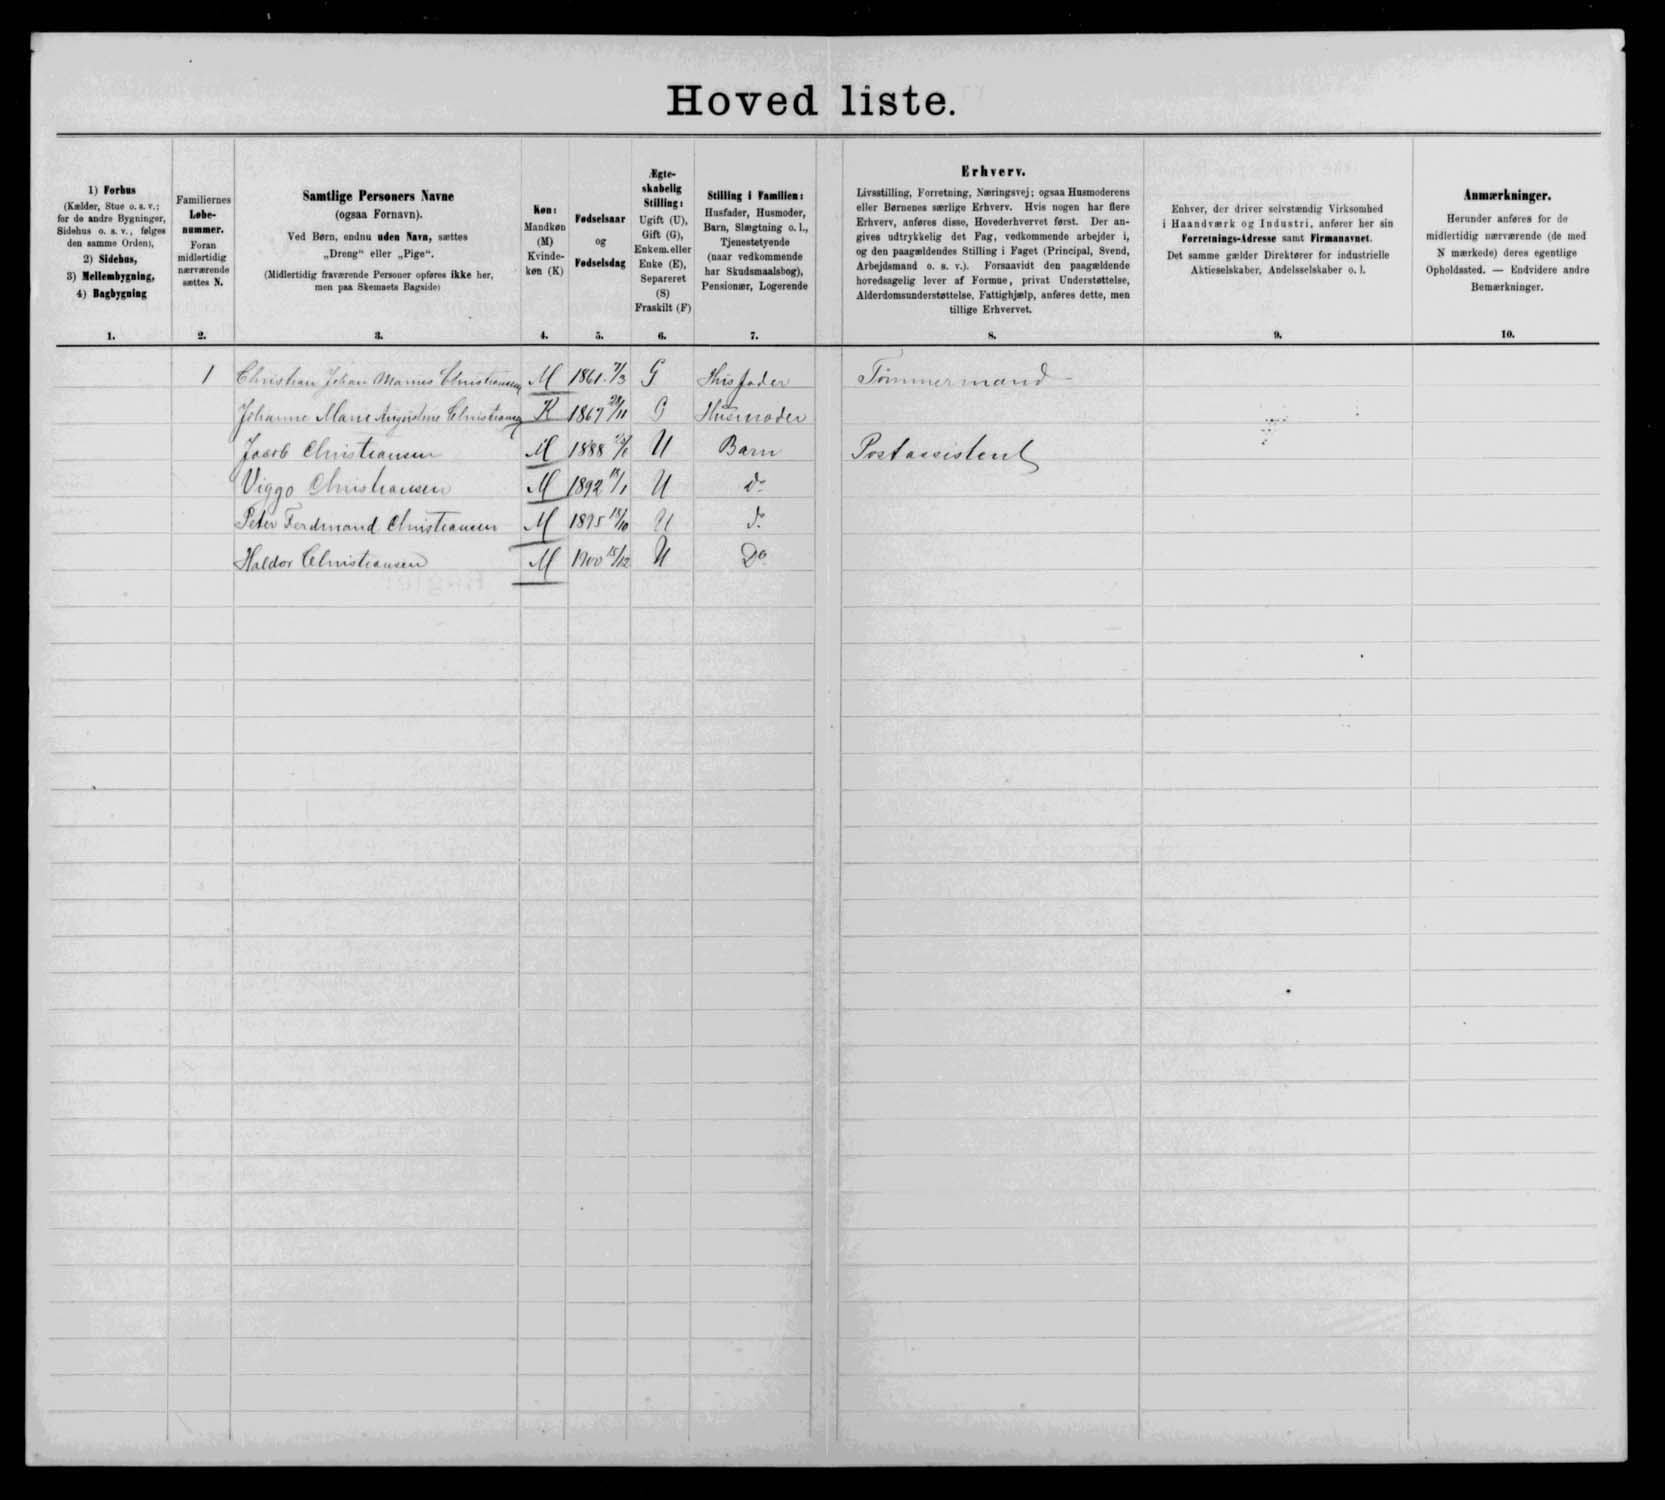 Hoved liste.
1) Forhus
(Kælder, Stue o. s. v.;
for de andre Bygninger,
Sidehus o. s. v., følges
den samme Orden),
2) Sidehus,
3) Mellembygning,
4) Bagbygning
1.
Familiernes
Løbe-
nummer.
Foran
midlertidig
nærværende
sættes N.
2.
Samtlige Personers Navne
(ogsaa Fornavn).
Ved Børn, endnu uden Navn, sættes
„Dreng“ eller „Pige“.
(Midlertidig fraværende Personer opføres ikke her,
men paa Skemaets Bagside)
3.
Køn:
Mandkøn
(M)
Kvinde-
køn (K)
4.
Fødselsaar
og
Fødselsdag
5.
Ægte-
skabelig
Stilling:
Ugift (U),
Gift (G),
Enkem. eller
Enke (E),
Separeret
(S)
Fraskilt (F)
6.
Stilling i Familien:
Husfader, Husmoder,
Barn, Slægtning o. l.,
Tjenestetyende
(naar vedkommende
har Skudsmaalsbog),
Pensionær, Logerende
7.
Erhverv.
Livsstilling, Forretning, Næringsvej; ogsaa Husmoderens
eller Børnenes særlige Erhverv. Hvis nogen har flere
Erhverv, anføres disse, Hovederhvervet først. Der an-
gives udtrykkelig det Fag, vedkommende arbejder i,
og den paagældendes Stilling i Faget (Principal, Svend,
Arbejdsmand o. s. v.). Forsaavidt den paagældende
hovedsagelig lever af Formue, privat Understøttelse,
Alderdomsunderstøttelse, Fattighjælp, anføres dette, men
tillige Erhvervet.
8.
Enhver, der driver selvstændig Virksomhed
i Haandværk og Industri, anfører her sin
Forretnings-Adresse samt Firmanavnet.
Det samme gælder Direktører for industrielle
Aktieselskaber, Andelsselskaber o. l.
9.
Anmærkninger.
Herunder anføres for de
midlertidig nærværende (de med
N mærkede) deres egentlige
Opholdssted. — Endvidere andre
Bemærkninger.
10.
1 Christian Johan Marius Christiansen M 1861 7/3 G Husfader Tømmermand
Johanne Marie Augustine Christiansen K 1867 /11 G Husmoder
Jacob Christiansen M 1888 U Barn Postassistent
Viggo Christiansen M 1892 /1 U Do
Peter Ferdinand Christiansen M 1895 /10 U Do
Haldor Christiansen M 1900 15/12 U Do